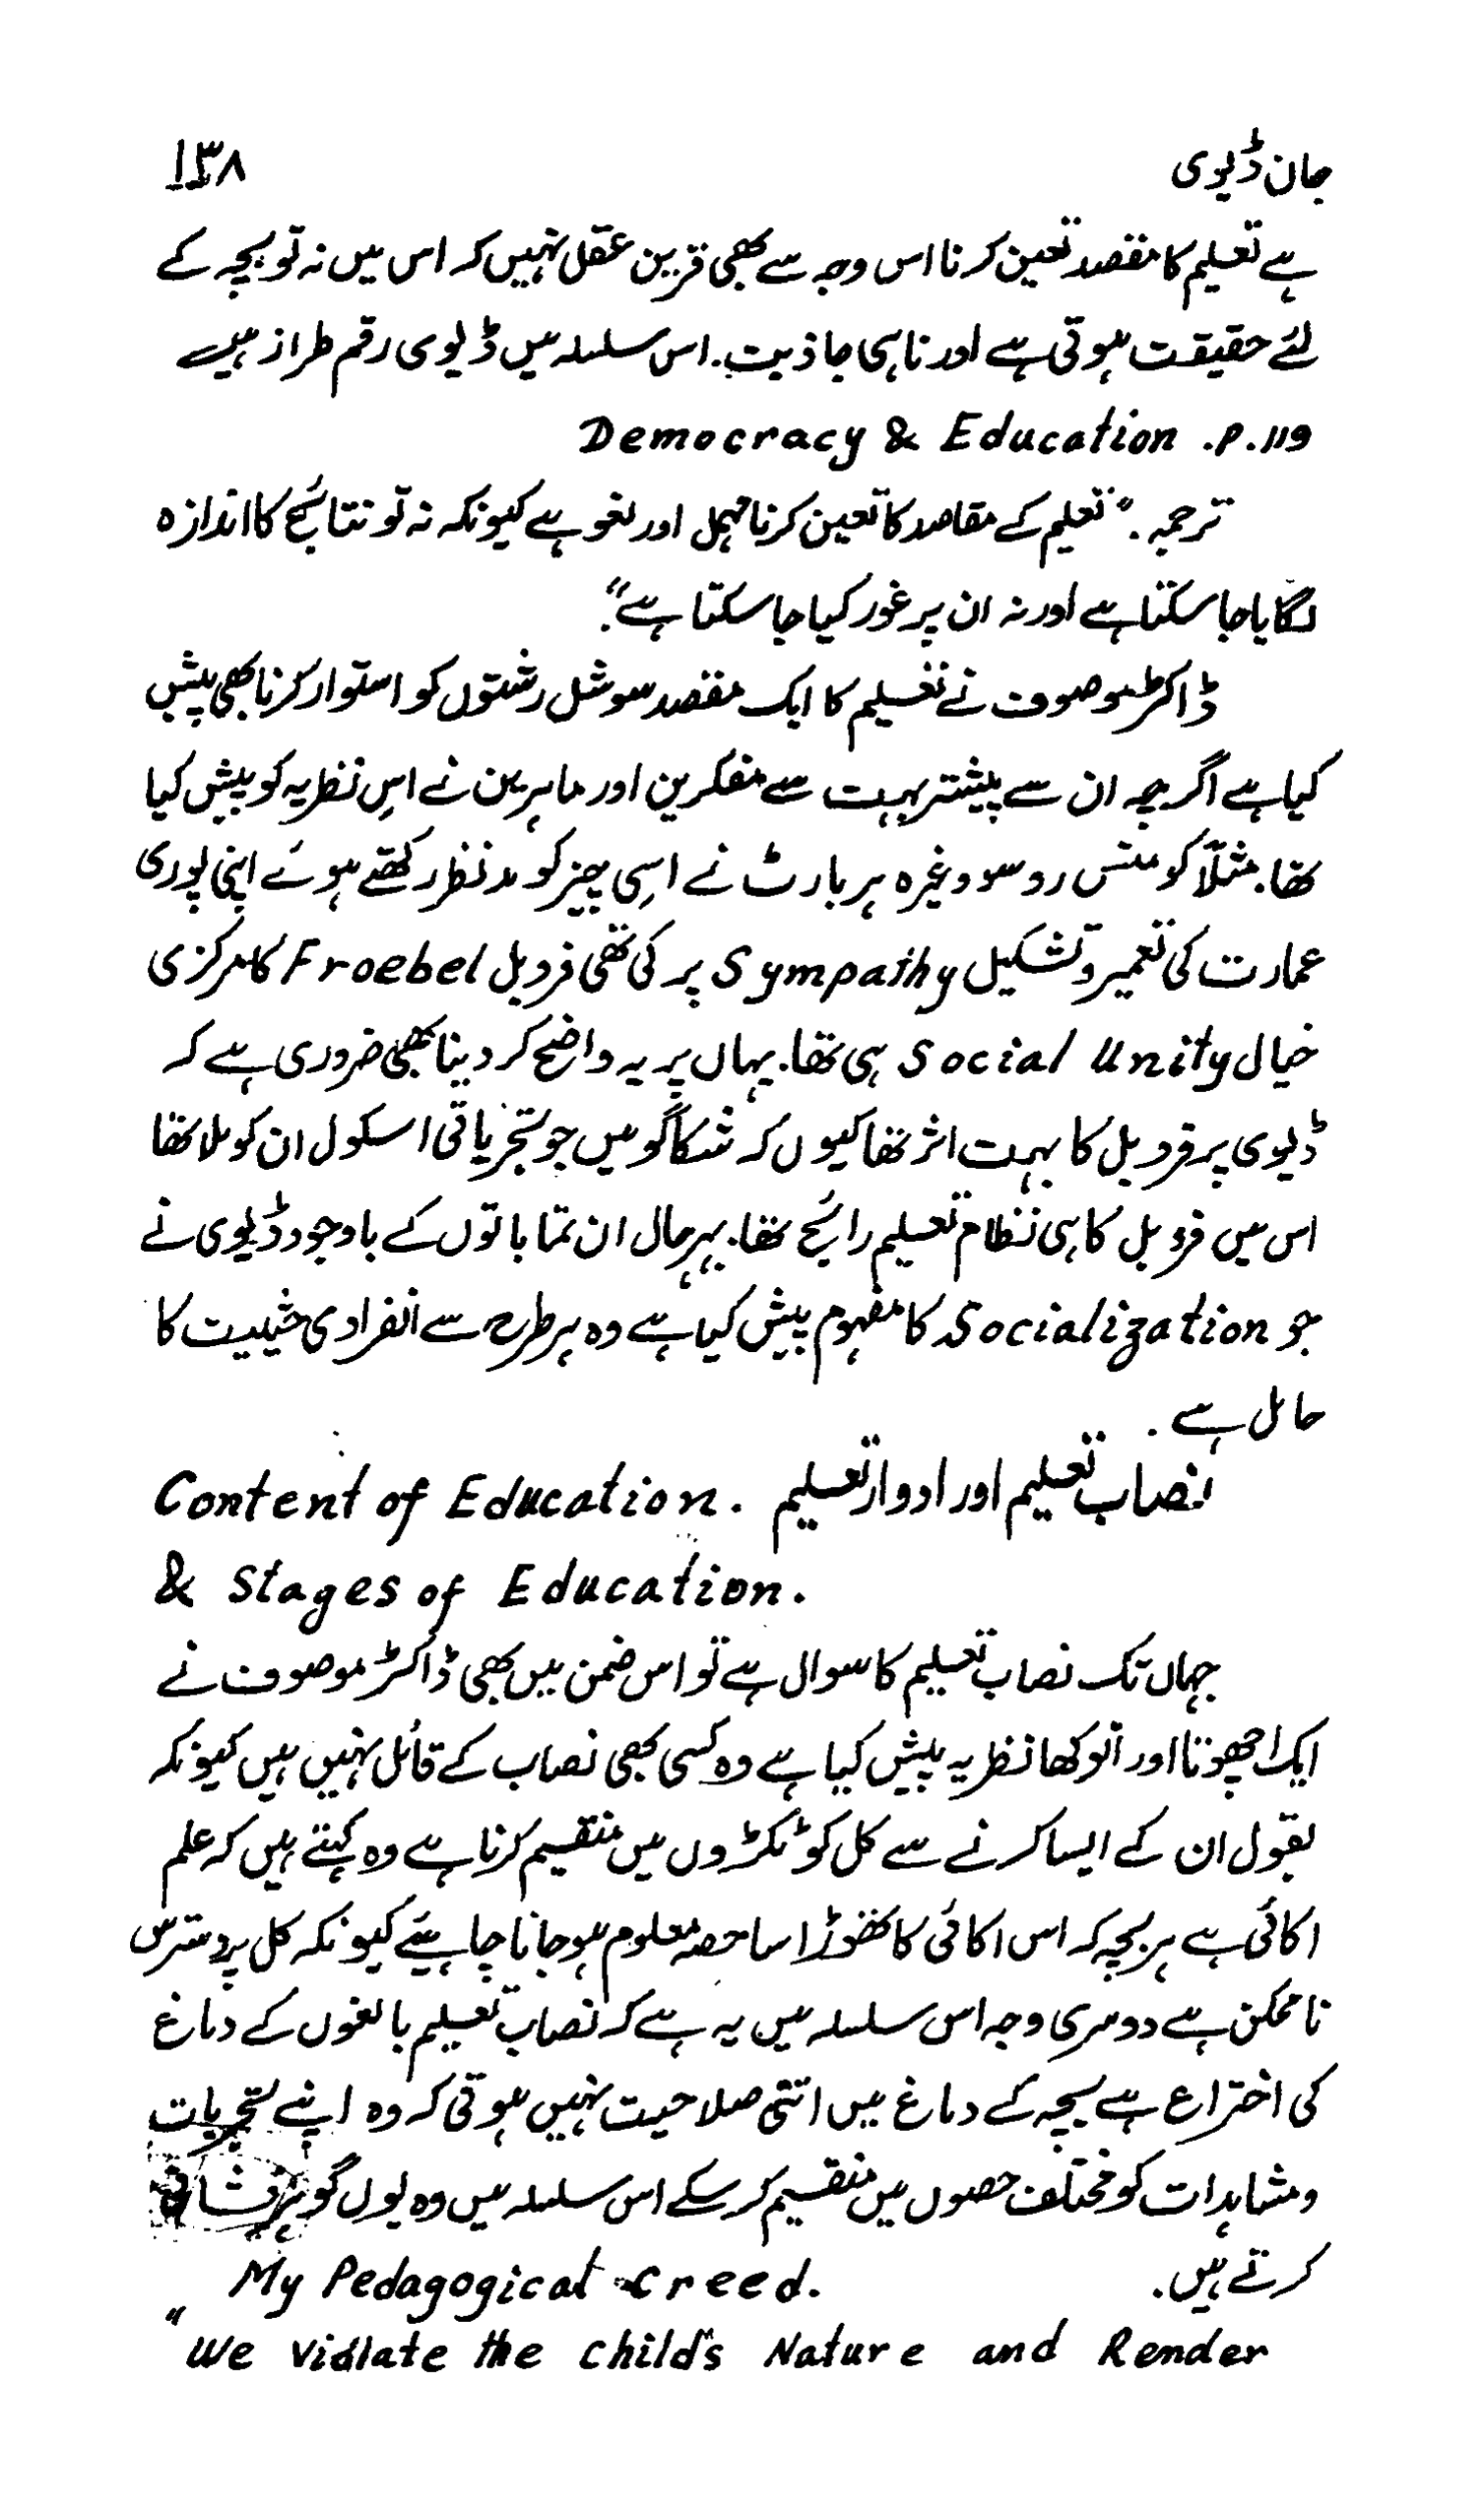 جان ڈیوی ۱۳۸
ہے تعلیم کا مقصد تعین کرنا اس وجہ سے بھی قرین عقل نہیں کہ اس میں نہ تو بچہ کے
لئے حقیقت ہوتی ہے اور ناہی جاذبیت۔ اس سلسلہ میں ڈیوی رقم طراز ہے
Democracy & Education .P.119
ترجمہ۔ "تعلیم کے مقاصد کا تعین کرنا مہمل اور لغو ہے کیونکہ نہ تو نتائج کا اندازہ
لگایا جا سکتا ہے اور نہ ان پر غور کیا جا سکتا ہے"۔
ڈاکٹر موصوف نے تعلیم کا ایک مقصد سوشل رشتوں کو استوار کرنا بھی پیش
کیا ہے اگرچہ ان سے پیشتر بہت سے مفکرین اور ماہرین نے اسِ نظریہ کو پیش کیا
تھا۔ مثلاً کومنس روسو وغیرہ ہربارٹ نے اسِی چیز کو مدنظر رکھتے ہوئے اپنی پوری
عمارت کی تعمیر و تشکیل Sympathy پر کی تھی فروبل Froebel کا مرکزی
خیال Social Unity ہی تھا۔ یہاں پر یہ واضح کر دینا بھی ضروری ہے کہ
ڈیوی پر فروبل کا بہت اثر تھا کیوں کہ شکاگو میں جو تجرباتی اسکول ان کو ملا تھا
اس میں فروبل کا ہی نظام تعلیم رائج تھا۔ بہرحال ان تما باتوں کے باوجود ڈیوی نے
جو Socialization کا مفہوم پیش کیا ہے وہ ہر طرح سے انفرادی حثییت کا
حامل ہے۔
نصاب تعلیم اور ادوار تعلیم Content of Education.
& Stages of Education.
جہاں تک نصاب تعلیم کا سوال ہے تو اس ضمن میں بھی ڈاکٹر موصوف نے
ایک اچھوتا اور انوکھا نظریہ پیش کیا ہے وہ کسی بھی نصاب کے قائل نہیں ہیں کیونکہ
بقول ان کے ایسا کرنے سے کل کو ٹکڑوں میں منقسیم کرنا ہے وہ کہتے ہیں کہ علم
اکائی ہے ہر بچہ کہ اس اکائی کا تھوڑا سا حصہ معلوم ہو جانا چاہیئے کیونکہ کل پر دسترس
ناممکن ہے دوسری وجہ اس سلسلہ میں یہ ہے کہ نصاب تعلیم بالغوں کے دماغ
کی اختراع ہے بچہ کے دماغ میں اتنی صلاحیت نہیں ہوتی کہ وہ اپنے تجربات
و مشاہدات کو مختلف حصوں میں منقسیم کر سکے اس سلسلہ میں وہ یوں گوہرفشانی
کرتے ہیں۔ My Pedagogical Creed.
"We Violate the child's Nature and Render